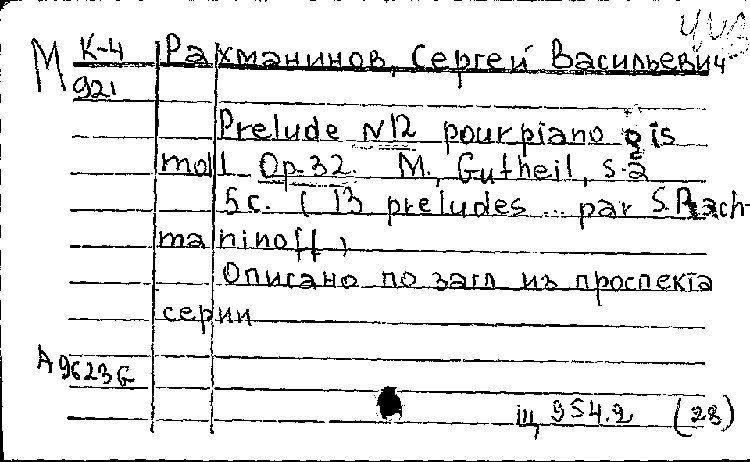 М К-4 Рахманинов, Сергей Васильевич
921
Prelude N12 pour piano gis
moll Op. 32. М., Gutheil, s. a
5 с. (13 preludes ... par S. Rach-
maninoff)
Описано по загл из проспекта
серии
А 9623 G
Щ 954.2 (28)